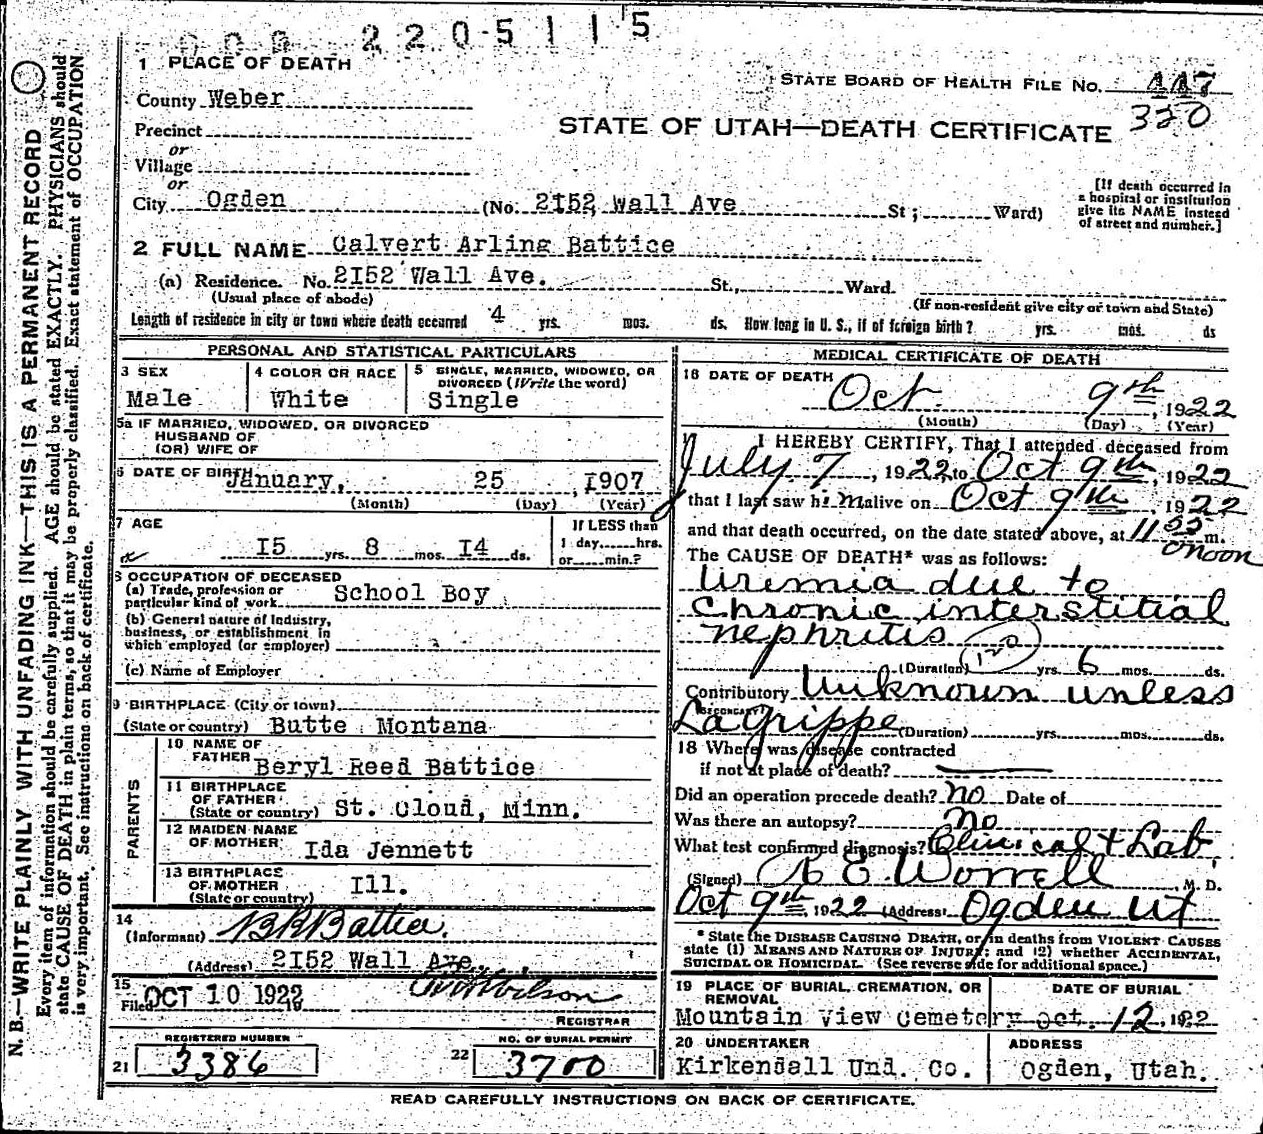 2205115
1 PLACE OF DEATH
STATE BOARD OF HEALTH FILE NO. 447
County Weber
320
STATE OF UTAH—DEATH CERTIFICATE
Precinct
or
Village
or
City Ogden (No. 2152 Wall Ave St; Ward)
[If death occurred in
a hospital or institution
give its NAME instead
of street and number.]
2 FULL NAME Calvert Arling Battice
(a) Residence. No. 2152 Wall Ave. St., Ward.
(Usual place of abode) (If non-resident give city or town and State)
Length of residence in city or town where death occurred 4 yrs. mos. ds. How long in U. S., if of foreign birth? yrs. mos. ds
PERSONAL AND STATISTICAL PARTICULARS
3 SEX
Male
4 COLOR OR RACE
White
5 SINGLE, MARRIED, WIDOWED, OR
DIVORCED (Write the word)
Single
5a IF MARRIED, WIDOWED, OR DIVORCED
HUSBAND OF
(OR) WIFE OF
6 DATE OF BIRTH January, 25, 1907
(Month) (Day) (Year)
7 AGE
15 yrs. 8 mos. 14 ds.
If LESS than
1 day......hrs.
or......min.?
8 OCCUPATION OF DECEASED
(a) Trade, profession or
particular kind of work School Boy
(b) General nature of Industry,
business, or establishment in
which employed (or employer)
(c) Name of Employer
9 BIRTHPLACE (City or town)
(State or country) Butte Montana
PARENTS
10 NAME OF
FATHER Beryl Reed Battice
11 BIRTHPLACE
OF FATHER
(State or country) St. Cloud, Minn.
12 MAIDEN NAME
OF MOTHER Ida Jennett
13 BIRTHPLACE
OF MOTHER
(State or country) Ill.
14
(Informant) B R Battice.
(Address) 2152 Wall Ave.
15
Filed OCT 10 1922 19
REGISTRAR
REGISTERED NUMBER
21 3386
NO. OF BURIAL PERMIT
22 3700
MEDICAL CERTIFICATE OF DEATH
16 DATE OF DEATH
Oct 9th, 1922
(Month) (Day) (Year)
I HEREBY CERTIFY, That I attended deceased from
July 7, 1922 to Oct 9th, 1922
that I last saw him alive on Oct 9th 1922
and that death occurred, on the date stated above, at 11 55 m.
noon
The CAUSE OF DEATH* was as follows:
Uremia due to
Chronic interstitial
nephritis
(Duration) yrs. 6 mos. ds.
Contributory Unknown unless
SECONDARY
La Grippe (Duration) yrs. mos. ds.
18 Where was disease contracted
if not at place of death?
Did an operation precede death? no Date of
Was there an autopsy? no
What test confirmed diagnosis? Clinical & Lab.
(Signed) R E Worrell, M. D.
Oct 9th, 1922 (Address) Ogden Ut
* State the DISEASE CAUSING DEATH, or in deaths from VIOLENT CAUSES
state (1) MEANS AND NATURE OF INJURY; and (2) whether ACCIDENTAL,
SUICIDAL OR HOMICIDAL. (See reverse side for additional space.)
19 PLACE OF BURIAL, CREMATION, OR
REMOVAL
Mountain View Cemetery
DATE OF BURIAL
Oct. 12, 1922
20 UNDERTAKER
Kirkendall Und. Co.
ADDRESS
Ogden, Utah.
READ CAREFULLY INSTRUCTIONS ON BACK OF CERTIFICATE.
N. B.—WRITE PLAINLY WITH UNFADING INK—THIS IS A PERMANENT RECORD
Every item of information should be carefully supplied. AGE should be stated EXACTLY. PHYSICIANS should
state CAUSE OF DEATH in plain terms, so that it may be properly classified. Exact statement of OCCUPATION
is very important. See instructions on back of certificate.